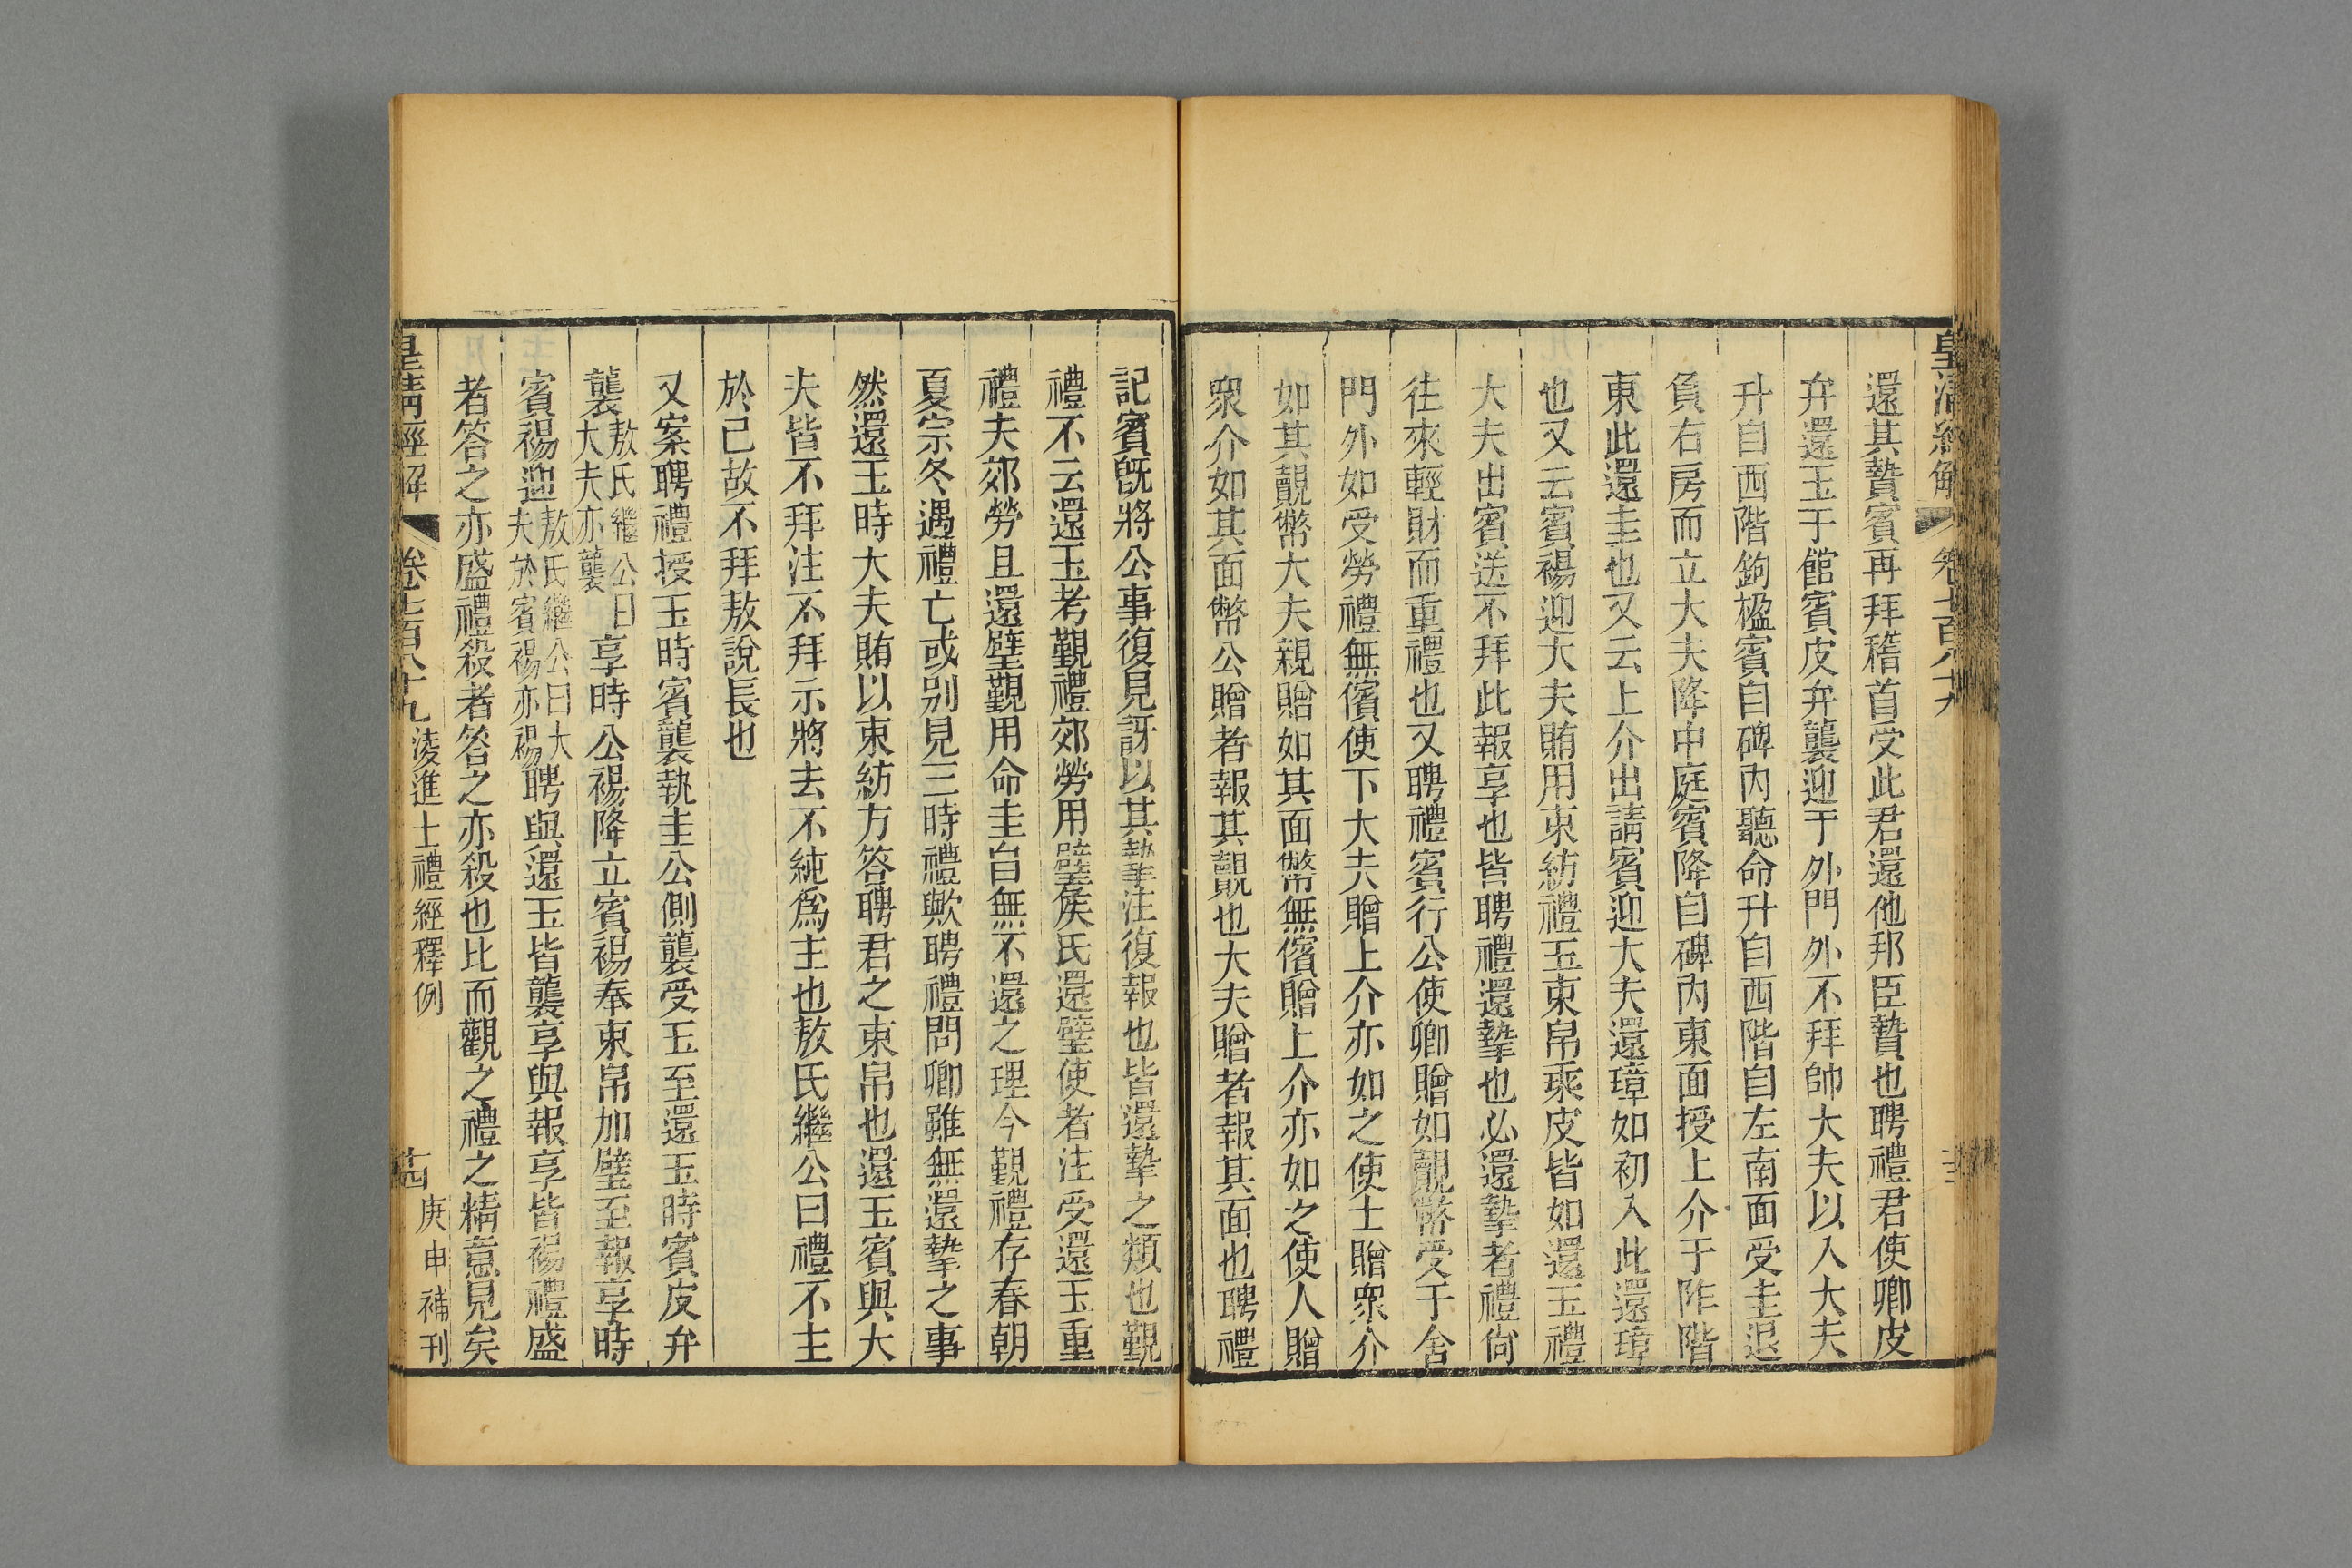 皇清經解 卷七百八十九 十三
還其贄賓再拜稽首受此君還他邦臣贄也聘禮君使卿皮
弁還玉于館賓皮弁襲迎于外門外不拜帥大夫以入大夫
升自西階鉤楹賓自碑內聽命升自西階自左南面受圭退
負右房而立大夫降中庭賓降自碑內東面授上介于阼階
東此還圭也又云上介出請賓迎大夫還璋如初入此還璋
也又云賓裼迎大夫賄用束紡禮玉束帛乘皮皆如還玉禮
大夫出賓送不拜此報享也皆聘禮還摯也必還摯者禮尙
往來輕財而重禮也又聘禮賓行公使卿贈如覿幣受于舍
門外如受勞禮無儐使下大夫贈上介亦如之使士贈眾介
如其覿幣大夫親贈如其面幣無儐贈上介亦如之使人贈
眾介如其面幣公贈者報其覿也大夫贈者報其面也聘禮
記賓旣將公事復見訝以其摯注復報也皆還摯之類也覲
禮不云還玉考覲禮郊勞用璧矦氏還璧使者注受還玉重
禮夫郊勞且還璧覲用命圭自無不還之理今覲禮存春朝
夏宗冬遇禮亡或别見三時禮歟聘禮問卿雖無還摯之事
然還玉時大夫賄以束紡方答聘君之束帛也還玉賓與大
夫皆不拜注不拜示將去不純爲主也敖氏繼公曰禮不主
於己故不拜敖說長也
又案聘禮授玉時賓襲執圭公側襲受玉至還玉時賓皮弁
襲敖氏繼公曰大夫亦襲享時公裼降立賓裼奉束帛加璧至報享時
賓裼迎敖氏繼公曰大夫於賓裼亦裼聘與還玉皆襲享與報享皆裼禮盛
者答之亦盛禮殺者答之亦殺也比而觀之禮之精意見矣
皇清經解 卷七百八十九 淩進士禮經釋例 十四 庚申補刊